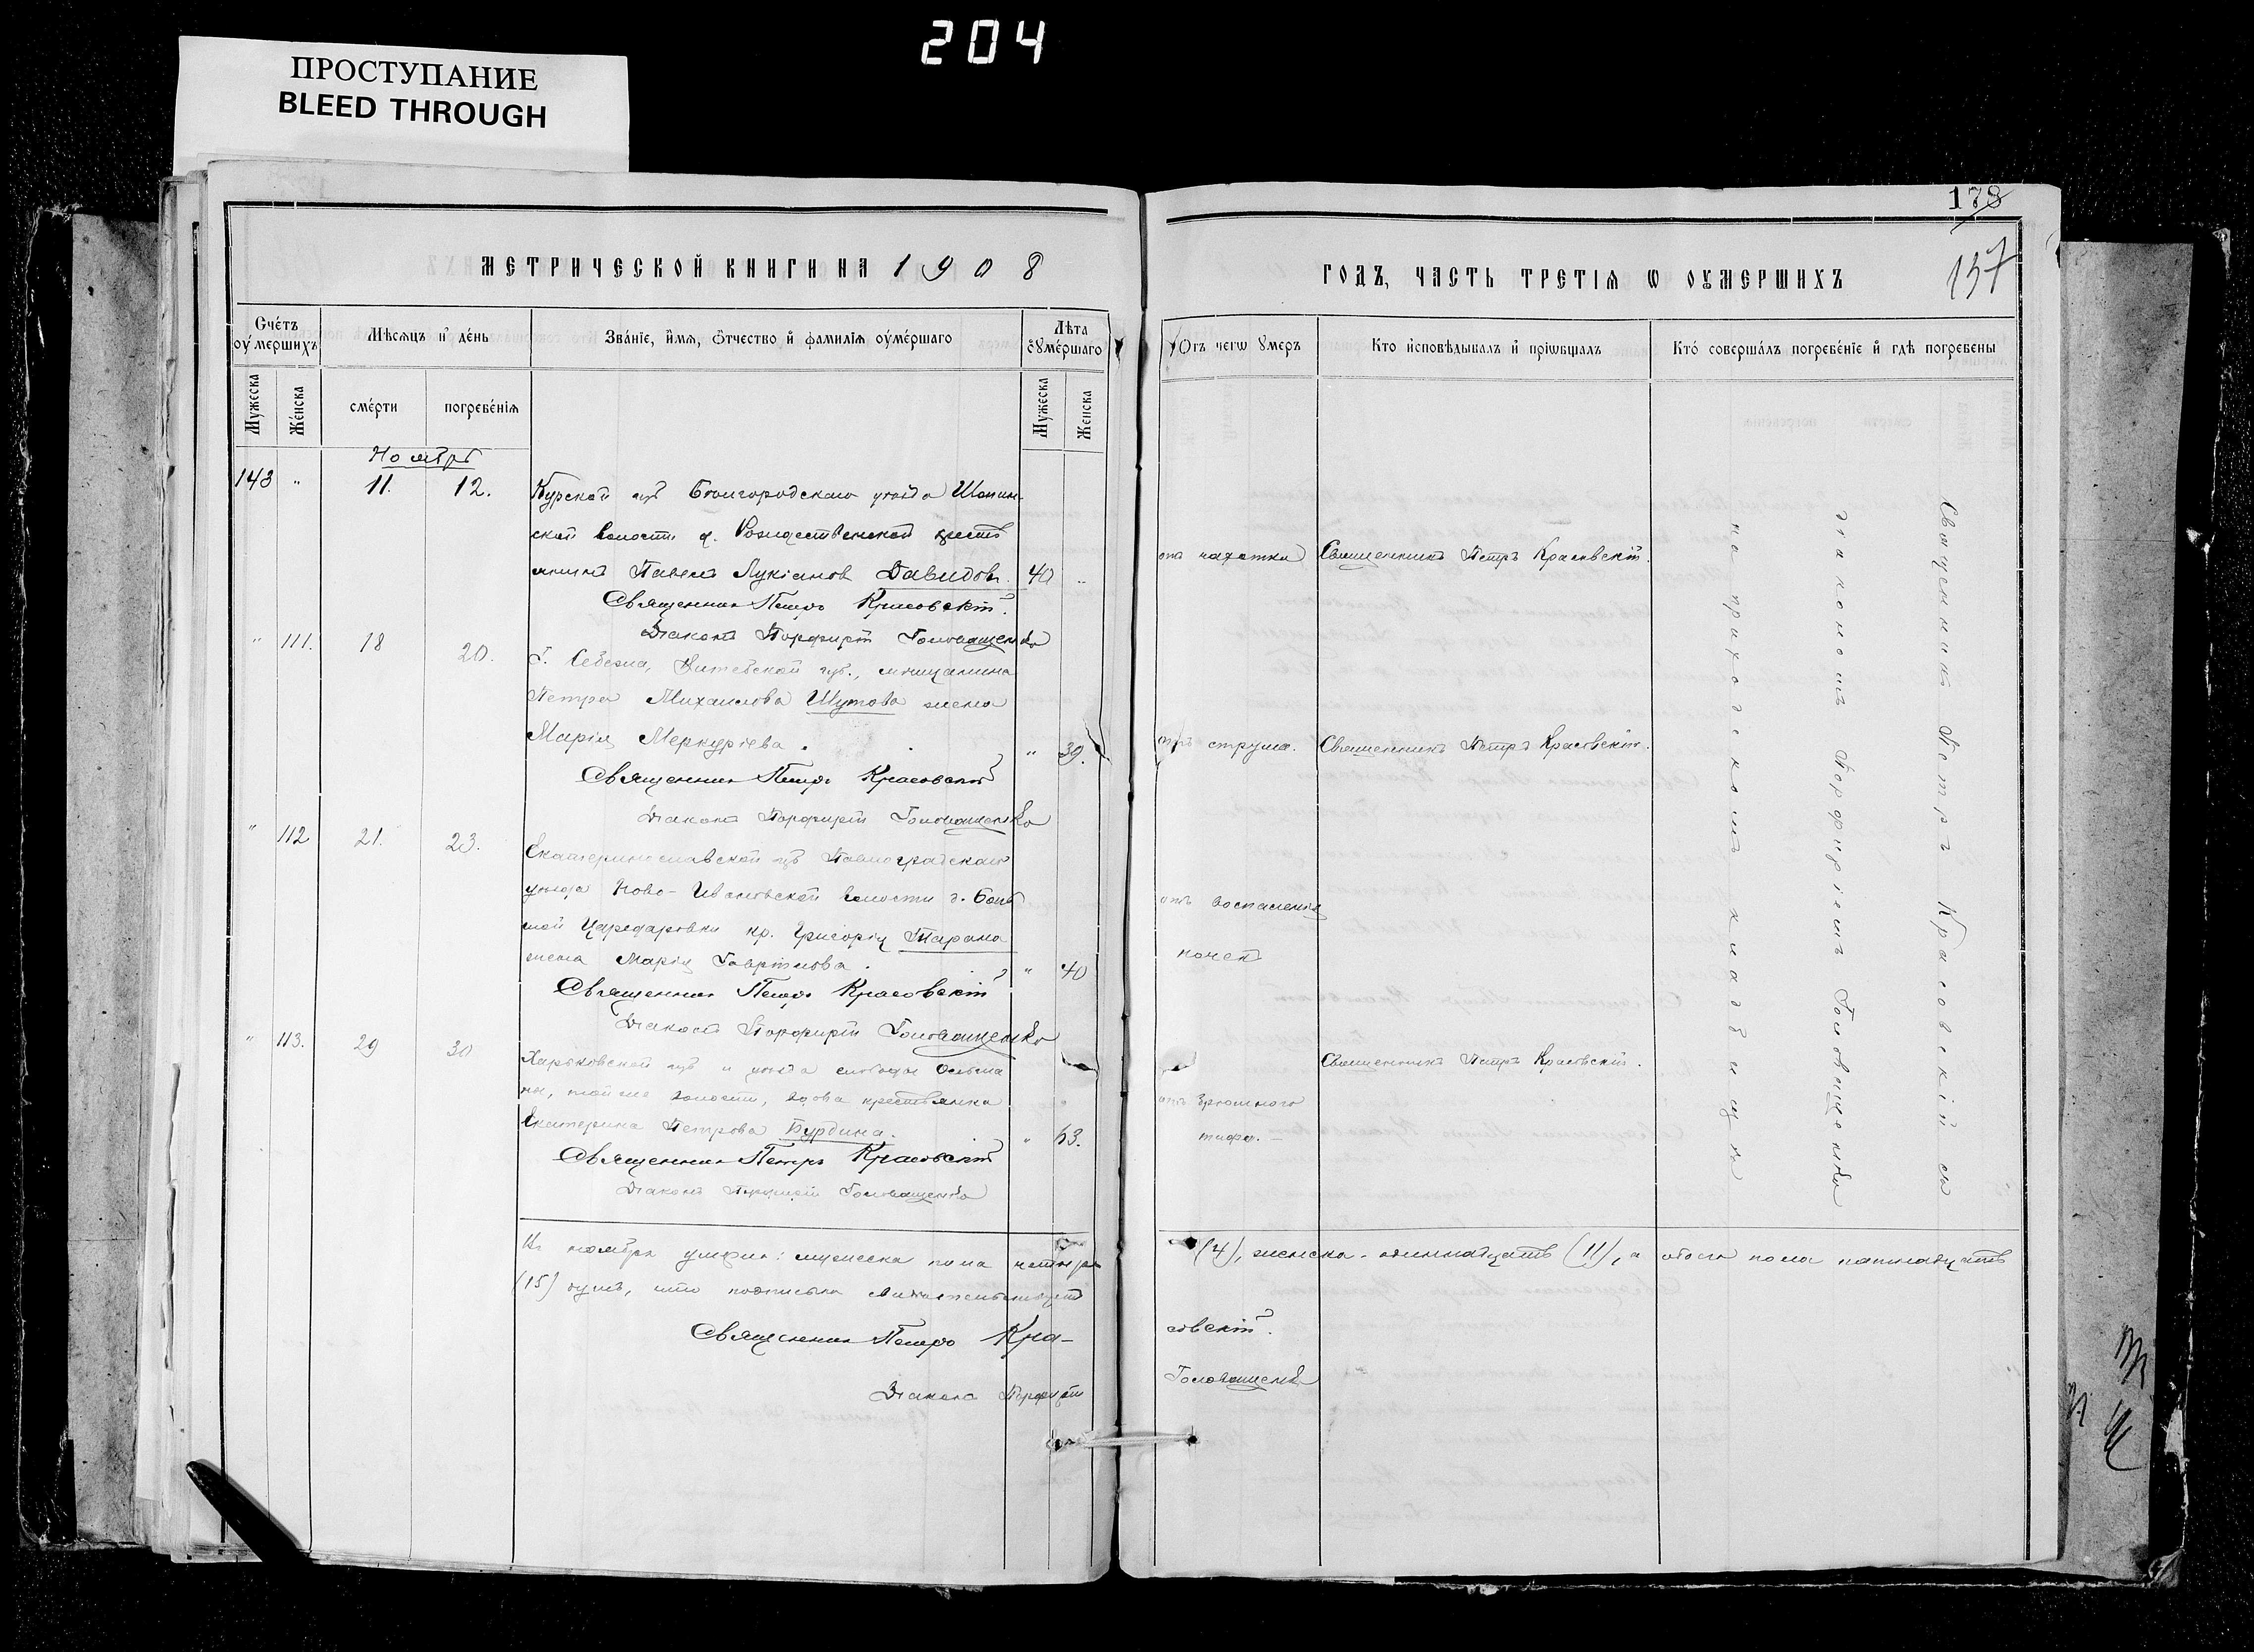 204
ПРОСТУПАНИЕ
BLEED THROUGH
МЕТРИЧЕСКОЙ КНИГИ НА 1908
Счетъ оумершихъ
Мѣсяцъ и день
Званіе, имя, отчество и фамилія оумершаго
Лѣта оумершаго
Мужеска
Женска
смерти
погребенія
Мужеска
Женска
Ноябрь
143 " 11. 12. Курской губ Бѣлгородскаго уѣзда Шопин-
ской волости д. Рождественской кресть
янинъ Павелъ Лукіановъ Давидовъ. 40 "
Священникъ Петръ Красовскій.
Діаконъ Порфирій Головащенко
" 111. 18 20. Г. Себежа, Витебской губ., мѣщанина
Петра Михаилова Шутова жена
Марія Меркуріева. " 39.
Священникъ Петръ Красовскій
Діаконъ Порфирій Головащенко
" 112 21. 23. Екатеринославской губ Павлоградскаго
уѣзда Ново-Ивановской волости д. Боль
шой Царедаровки кр. Григорія Тарана
жена Марія Гавріилова. " 40
Священникъ Петръ Красовскій
Діаконъ Порфирій Головащенко
" 113. 29 30 Харьковской губ и уѣзда слободы Ольша
ны, той же волости, вдова крестьянка
Екатерина Петрова Бурдина. " 63.
Священникъ Петръ Красовскій
Діаконъ Порфирій Головащенко
Въ ноябрѣ умерло: мужеска пола четыре
(15) душъ, что подписью свидѣтельствуемъ
Священникъ Петръ Кра-
Діаконъ Порфирій
178
157
ГОДЪ, ЧАСТЬ ТРЕТІЯ Ѡ ОУМЕРШИХЪ
Отъ чегѡ умеръ
Кто исповѣдывалъ и пріѡбщалъ
Кто совершалъ погребеніе и гдѣ погребены
отъ чахотки Священникъ Петръ Красовскій.
отъ струма. Священникъ Петръ Красовскій.
отъ воспаленія
почекъ
Священникъ Петръ Красовскій.
отъ брюшного
тифа.
Священникъ Петръ Красовскій съ
діакономъ Порфиріемъ Головащенко
на приходскомъ кладбищѣ
(4), женска - одиннадцать (11), а обоего пола пятнадцать
совскій.
Головащенко